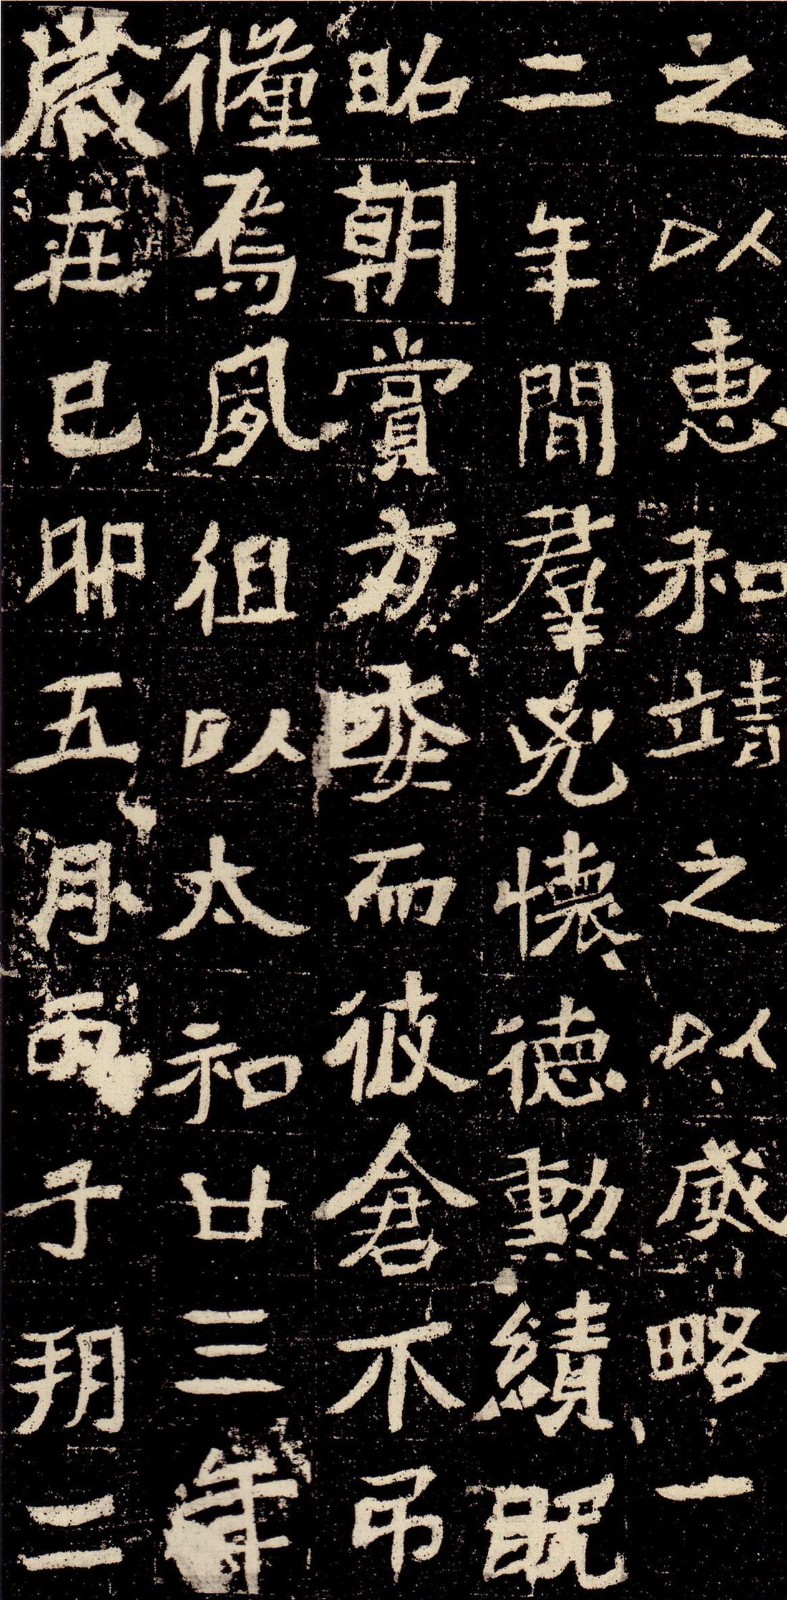 之以惠和靖之以威略一
二年間羣兇懷德勳績既
昭朝賞方而彼倉不弔
焉夙徂以太和廿三年
歲在己卯五月丙子朔二